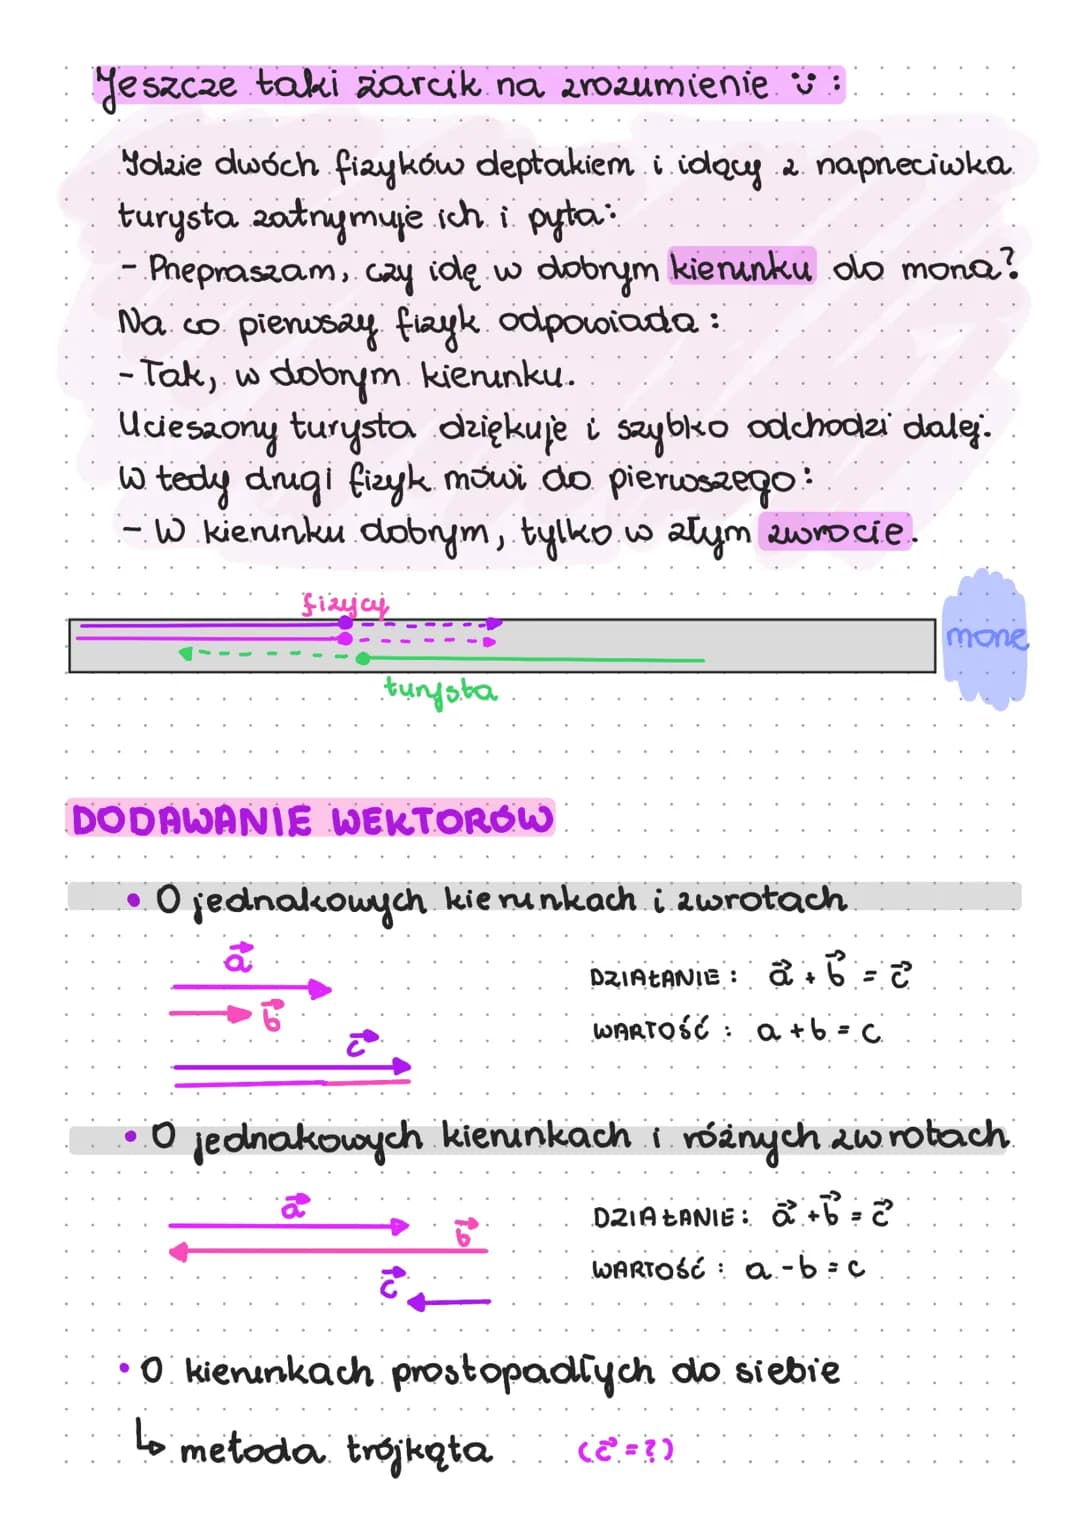 Jeszcze taki żarcik na zrozumienie ü :
Idzie dwóch fizyków deptakiem i idący z naprzeciwka
turysta zatrzymuje ich i pyta:
- Przepraszam, czy idę w dobrym kierunku do morza?
Na co pierwszy fizyk odpowiada :
- Tak, w dobrym kierunku.
Ucieszony turysta dziękuje i szybko odchodzi dalej.
W tedy drugi fizyk mówi do pierwszego:
- W kierunku dobrym, tylko w złym zwrocie.
fizycy
morze
turysta
DODAWANIE WEKTORÓW
• O jednakowych kierunkach i zwrotach
a⃗
DZIAŁANIE : a⃗ + b⃗ = c⃗
b⃗
WARTOŚĆ : a + b = c
c⃗
• O jednakowych kierunkach i różnych zwrotach
a⃗
DZIAŁANIE: a⃗ + b⃗ = c⃗
b⃗
WARTOŚĆ : a - b = c
c⃗
• O kierunkach prostopadłych do siebie
↳ metoda trójkąta (c⃗ = ?)